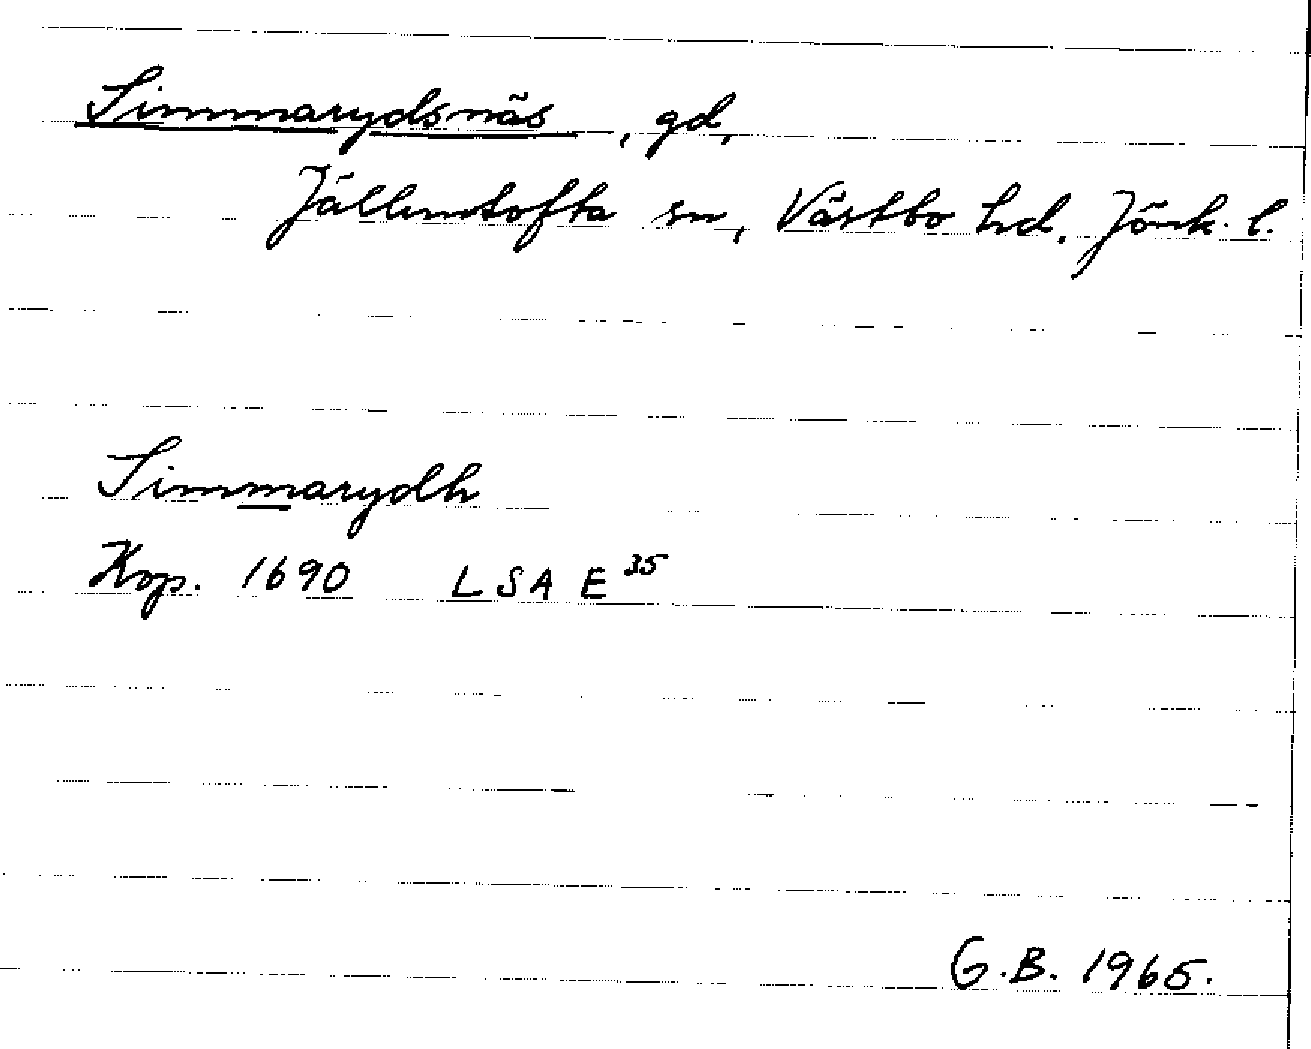 Simmarydsnäs, gd,
Jälluntofta sn, Västbo hd. Jönk. l.
Simmarydh
Kop. 1690 LSA E 35
G.B. 1965.